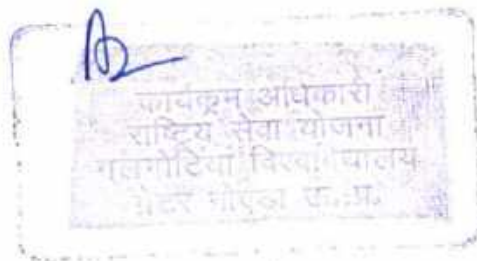 कार्यक्रम अधिकारी
राष्ट्रिय सेवा योजना
गलगोटियां विश्वा वालय
ग्रेटर नोएडा उ..प्र.